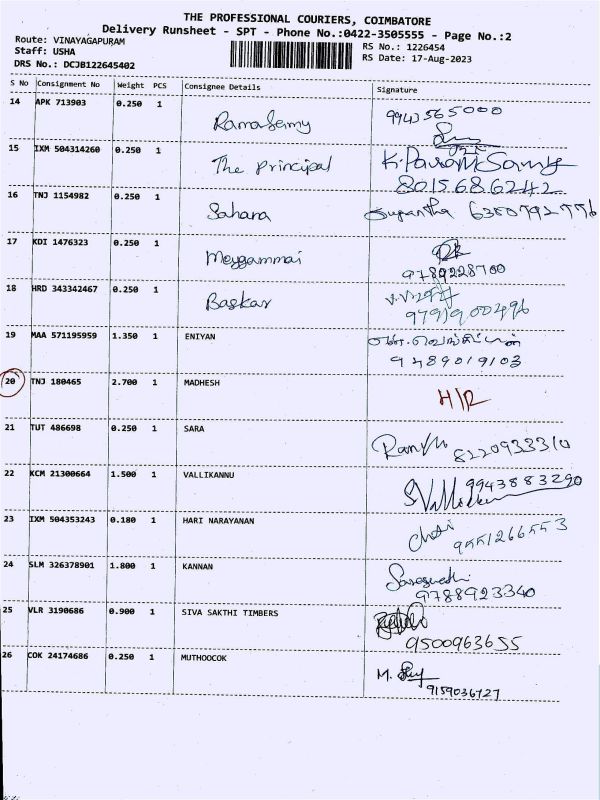 THE PROFESSIONAL COURIERS, COIMBATORE
Delivery Runsheet - SPT - Phone No.:0422-3505555 - Page No.:2
Route: VINAYAGAPURAM
Staff: USHA
DRS No.: DCJB122645402
RS No.: 1226454
RS Date: 17-Aug-2023
S No Consignment No Weight PCS Consignee Details Signature
14 APK 713903 0.250 1 Ramasamy 9943565000
15 IXM 504314260 0.250 1 The Principal K. ParamSamy
8015686242
16 TNJ 1154982 0.250 1 Sahara
17 KDI 1476323 0.250 1 Meyyammai
9789228700
18 HRD 343342467 0.250 1 Baskar
9791900496
19 MAA 571195959 1.350 1 ENIYAN
9489019103
20 TNJ 180465 2.700 1 MADHESH H/R
21 TUT 486698 0.250 1 SARA 8220933310
22 KCM 21300664 1.500 1 VALLIKANNU 9943883290
23 IXM 504353243 0.180 1 HARI NARAYANAN
9551266553
24 SLM 326378901 1.800 1 KANNAN
9788923340
25 VLR 3190686 0.900 1 SIVA SAKTHI TIMBERS
9500963655
26 COK 24174686 0.250 1 MUTHOOCOK M.
9159036727